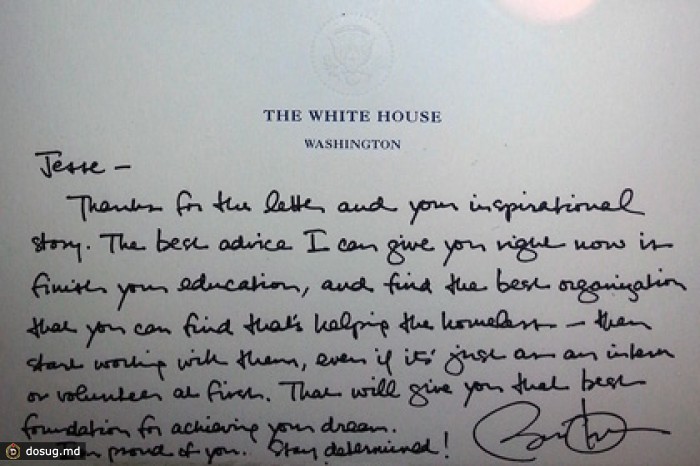 THE WHITE HOUSE
WASHINGTON
Jesse –
Thanks for the letter and your inspirational
story. The best advice I can give you right now is
finish your education, and find the best organization
that you can find that's helping the homeless – then
start working with them, even if it's just as an intern
or volunteer at first. That will give you that best
foundation for achieving your dream.
I'm proud of you. Stay determined!
dosug.md